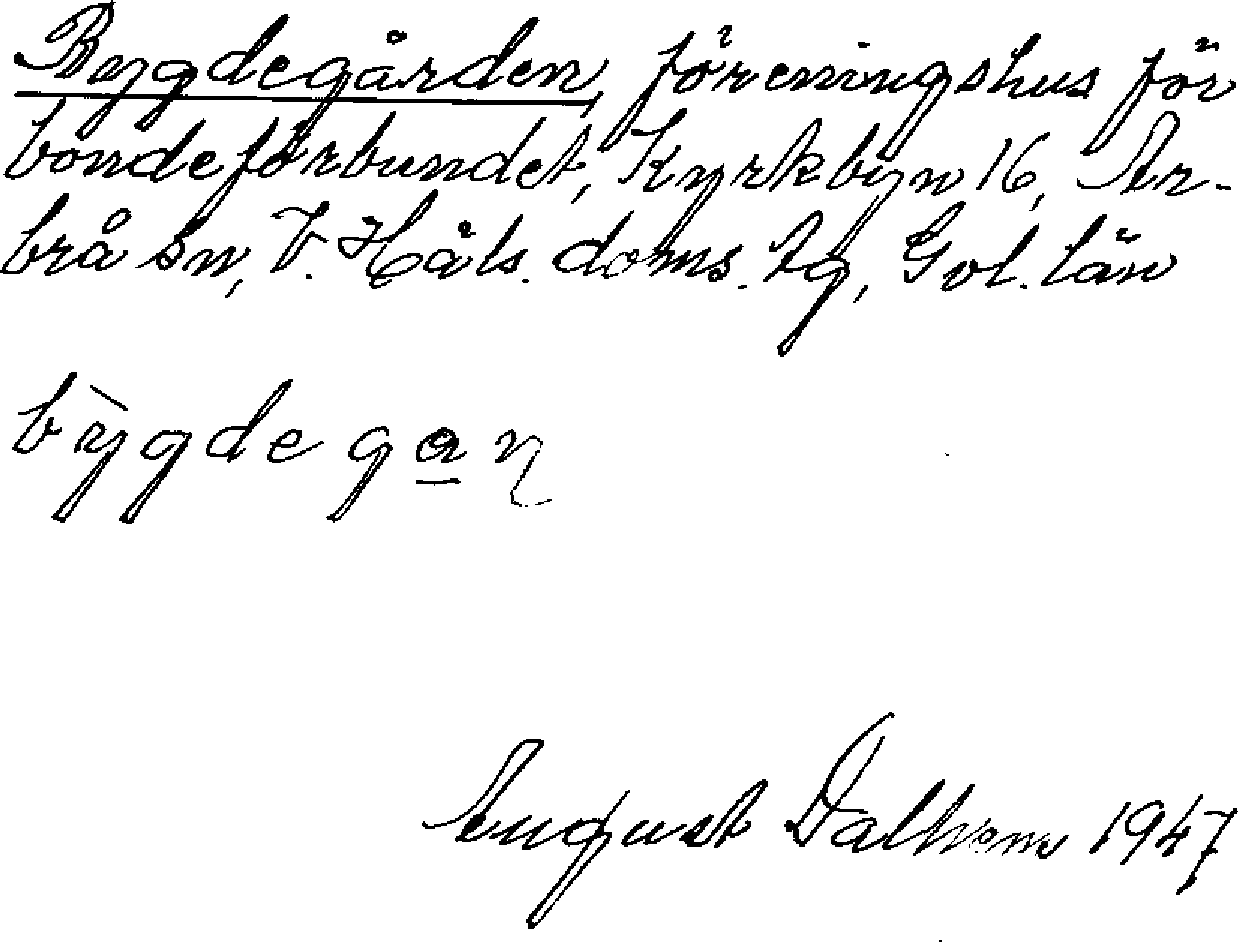 Bygdegården, föreningshus för
bondeförbundet, Kyrkbyn 16, Ar-
brå sn, V. Häls. doms. tg, Gvl. län
bỳgde ga̲ɳ
August Dalhem 1947